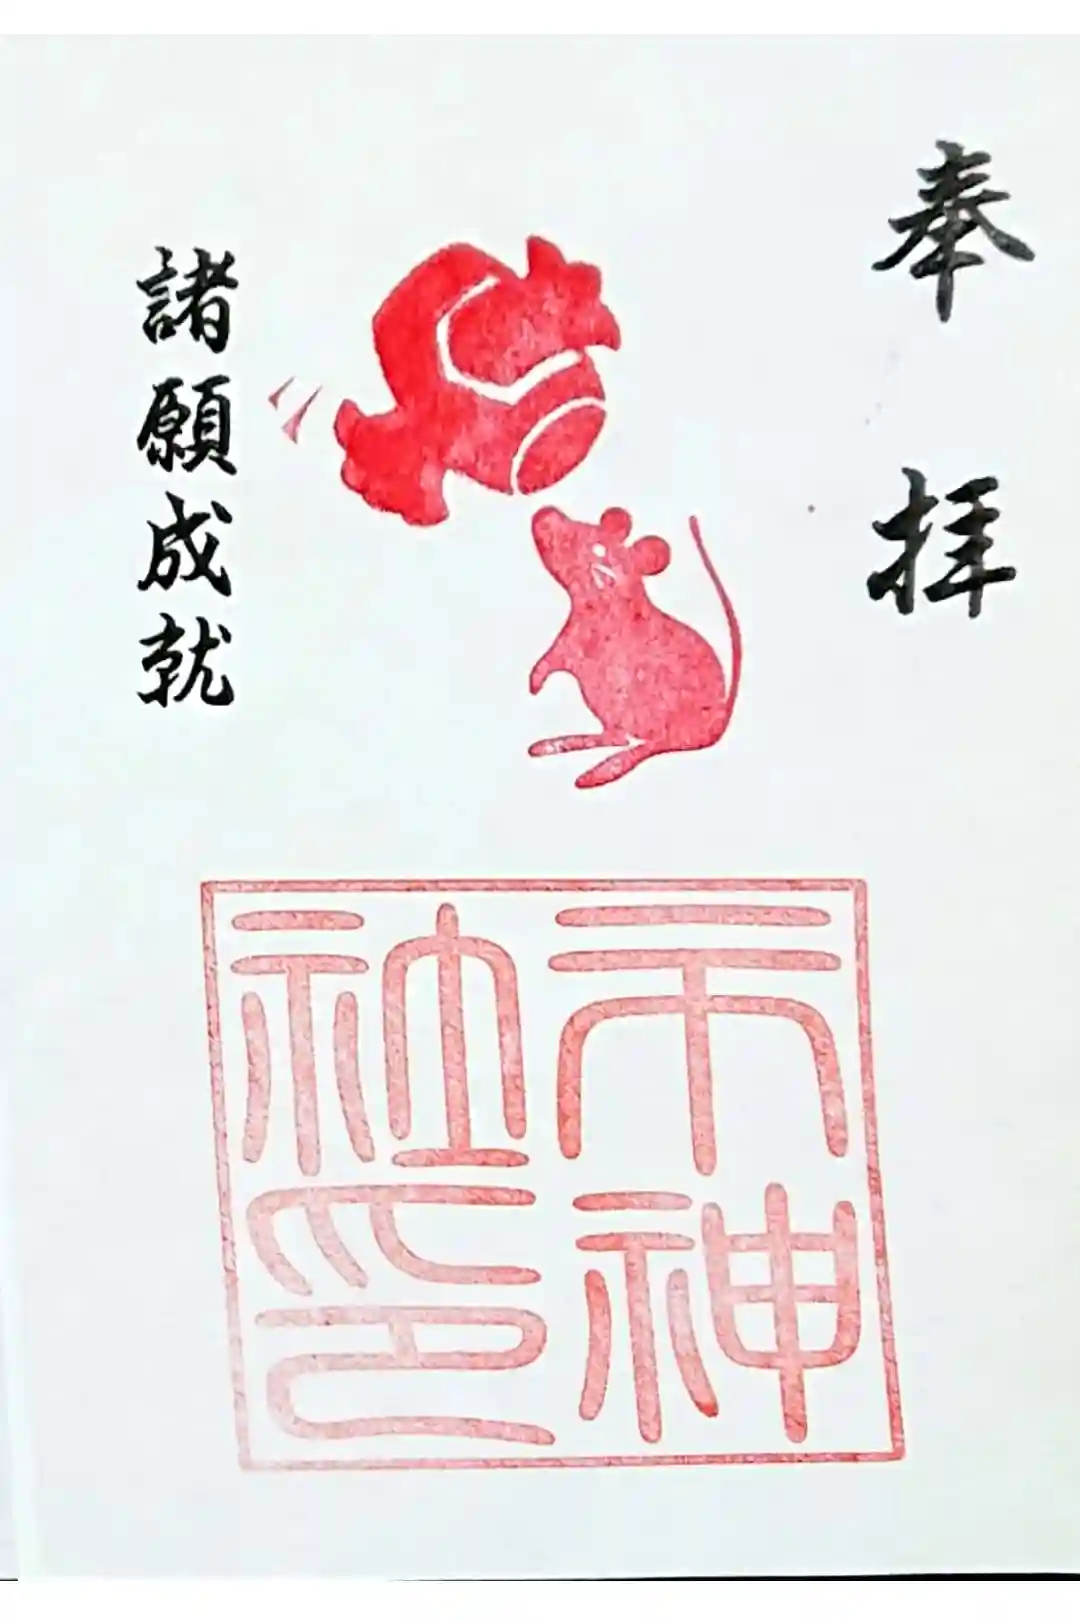 奉拝
諸願成就
市神
社印